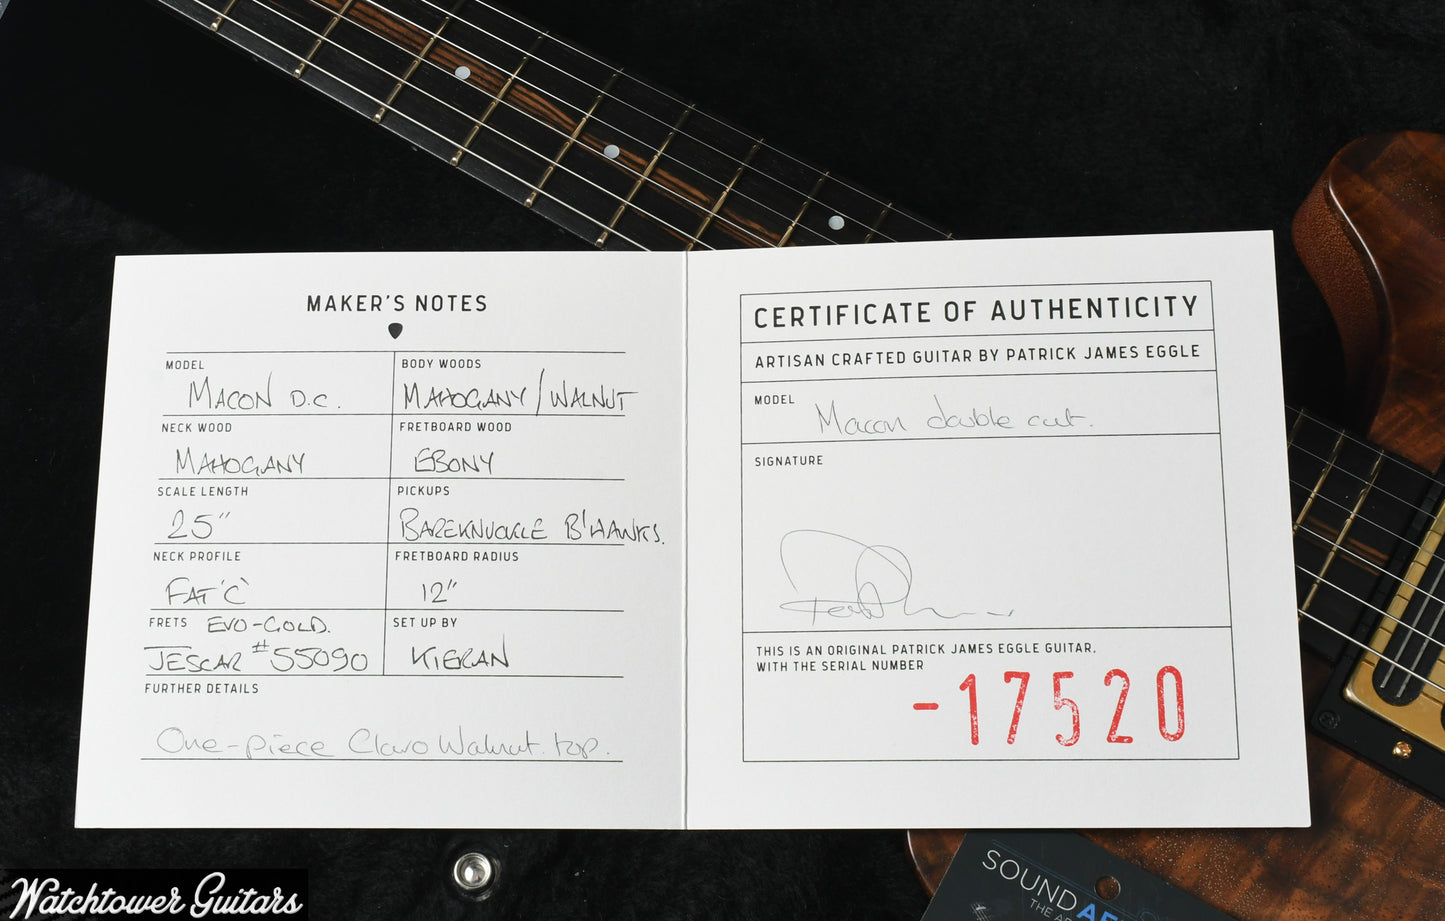 MAKER'S NOTES
MODEL
MACON D.C.
BODY WOODS
MAHOGANY/WALNUT
NECK WOOD
MAHOGANY
FRETBOARD WOOD
EBONY
SCALE LENGTH
25"
PICKUPS
BAREKNUCKLE B'HAWKS.
NECK PROFILE
FAT 'C'
FRETBOARD RADIUS
12"
FRETS EVO-GOLD.
JESCAR #55090
SET UP BY
KIERAN
FURTHER DETAILS
One-piece Claro Walnut top.
CERTIFICATE OF AUTHENTICITY
ARTISAN CRAFTED GUITAR BY PATRICK JAMES EGGLE
MODEL
Macon double cut.
SIGNATURE
THIS IS AN ORIGINAL PATRICK JAMES EGGLE GUITAR,
WITH THE SERIAL NUMBER
-17520
SOUND
THE
Watchtower Guitars